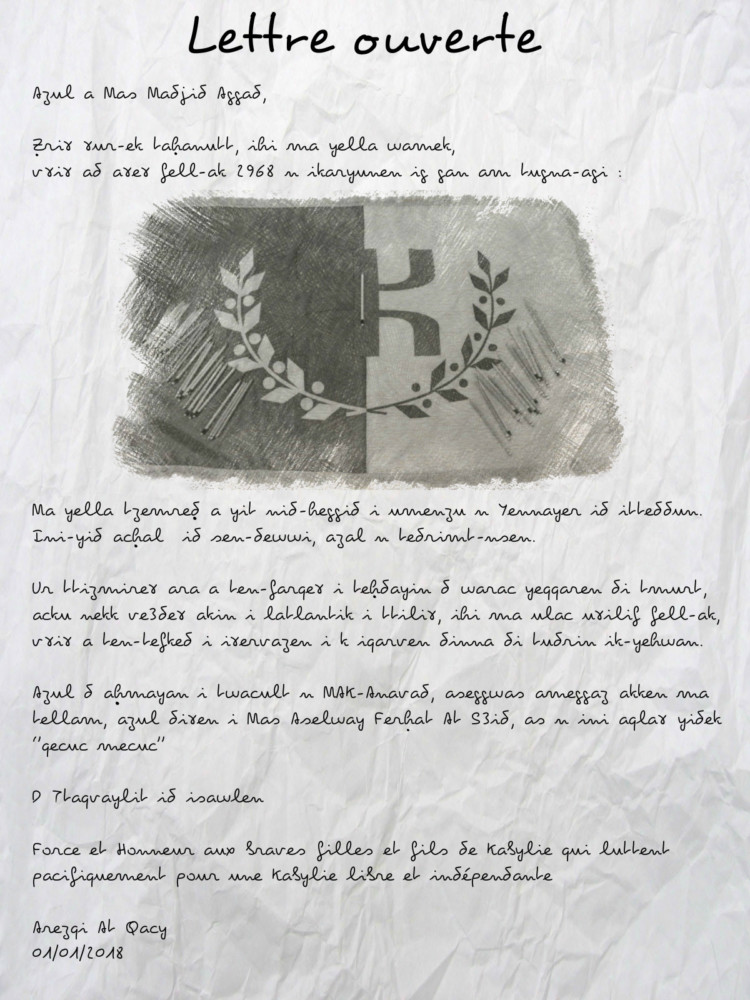 Lettre ouverte
Azul a Mas Madjid Aggad,
Ẓriɣ ɣur-ek taḥanutt, ihi ma yella wamek,
vɣiɣ ad aɣeɣ fell-ak 2968 n ikaryunen ig gan am tugna-agi :
Ma yella tzemreḍ a yit nid-heggid i umenzu n Yennayer id itteddun.
Ini-yid acḥal id sen-dewwi, azal n tedrimt-nsen.
Ur ttizmireɣ ara a ten-farqeɣ i teḥdayin d warac yeqqaren di tmurt,
acku nekk ve3deɣ akin i latlantik i ttiliɣ, ihi ma ulac uɣilif fell-ak,
vɣiɣ a ten-tefked i iɣervazen i k iqarven dinna di tudrin ik-yehwan.
Azul d aḥmayan i twacult n MAK-Anavad, aseggwas ameggaz akken ma
tellam, azul diɣen i Mas Aselway Ferḥat At S3id, as n ini aqlaɣ yidek
"qecuc mecuc"
D Ttaqvaylit id isawlen
Force et Honneur aux braves filles et fils de Kabylie qui luttent
pacifiquement pour une Kabylie libre et indépendante
Arezqi At Qacy
01/01/2018